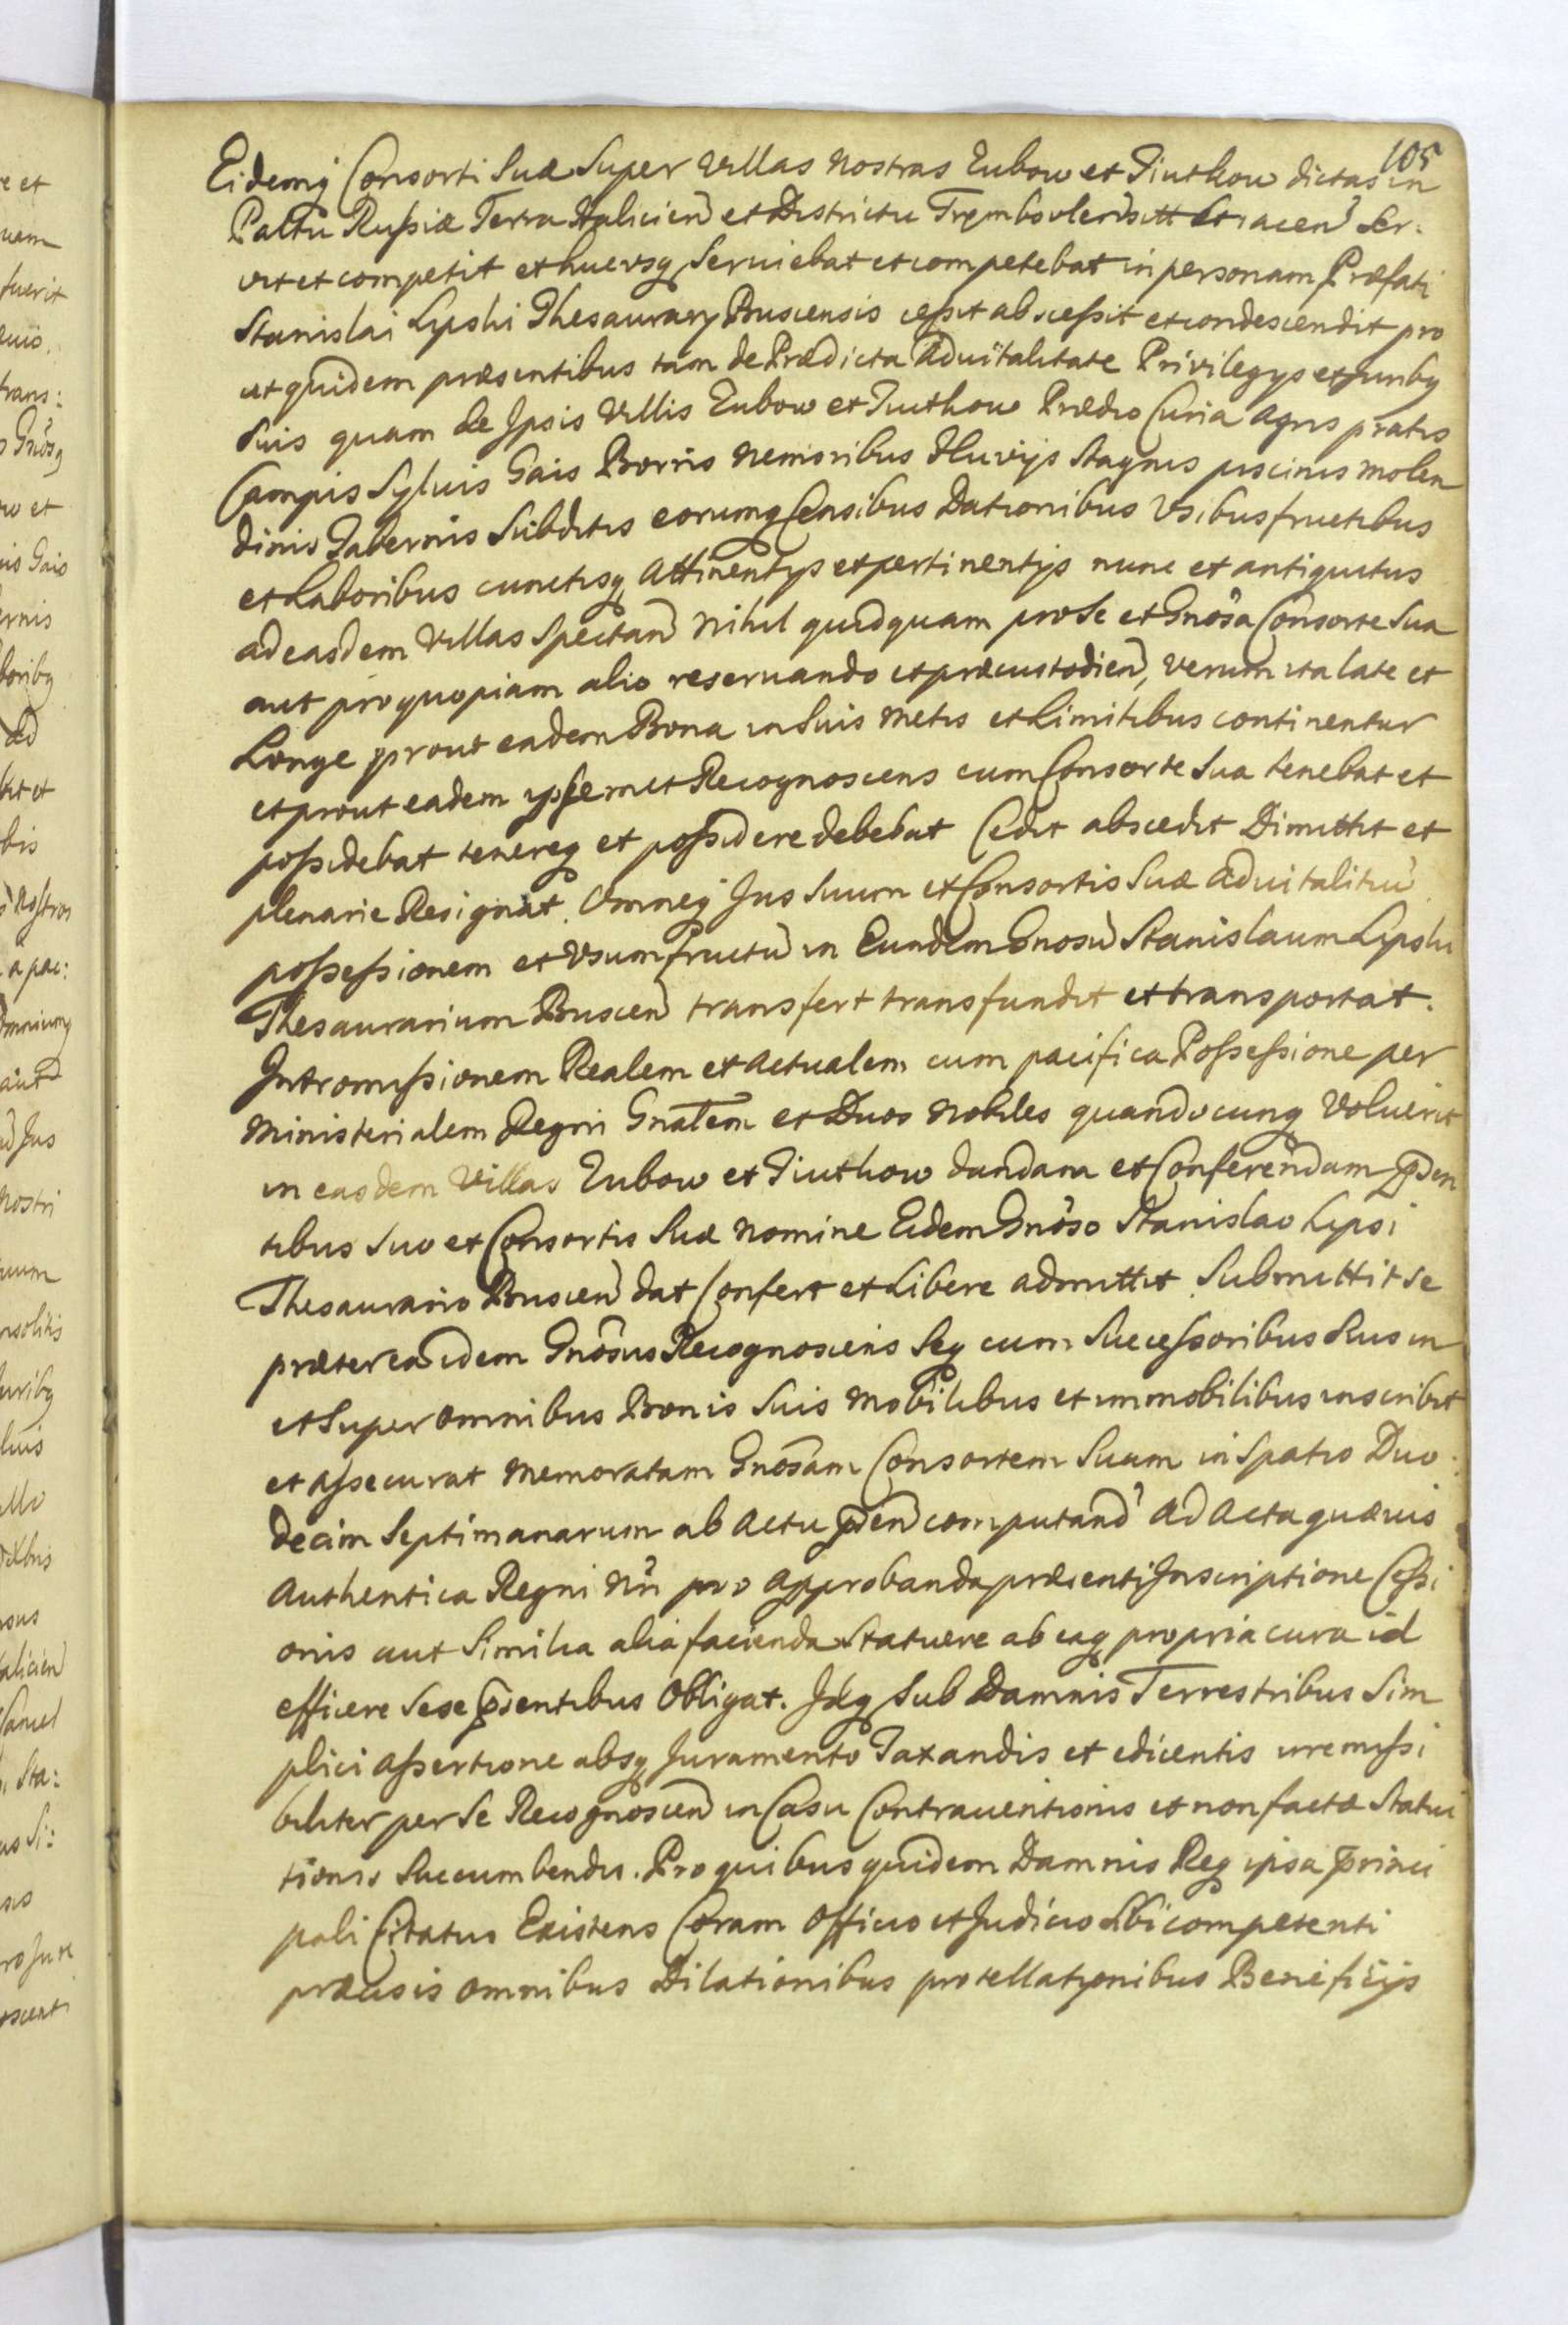 105
Eidemq Consorti Suæ Super Villas nostras Zubow et Tiutkow dictas in
Paltu Russiæ Terra Haliciens et Districtu Trembovlens sitt et iacen Ser:
vit et competit et hucusq Seruiebat et competebat in personam Præfati
Stanislai Lipski Thesaurary Buscensis cessit abscessit et condescendit pro
ut quidem præsentibus tam de Prædicta Aduitalitate Privilegys et Juribq
Suis quam de Ipsis Villis Zubow et Tiutkow Prædio Curia Agris pratis
Campis Syluis Gais Borris Nemoribus Fluvijs Stagnis piscinis Molen
dinis Tabernis Subditis eorumq Censibus Dationibus Vsibusfructibus
et Laboribus cunctisq Attinentys et pertinentijs nunc et antiquitus
ad easdem Villas Spectan Nihil quidquam pro Se et Gnosa Consorte Sua
aut pro quopiam alio reseruando et præcustodien, verum ita late et
Longe prout eadem Bona in Suis metis et Limitibus continentur
et prout eadem ipsemet Recognoscens cum Consorte Sua tenebat et
possidebat tenereq et possidere debebat Cedit abscedit Dimittit et
plenarie Resignat. Omneq Jus Suum et Consortis Suæ Aduitalitiu
possessionem et Vsumfructu in Eundem Gnosu Stanislaum Lipski
Thesaurarium Buscen transfert transfundit et transportat.
Intromissionem Realem et Actualem cum pacifica Possessione per
Ministerialem Regni Gnalem et Duos Nobiles quandocunq Voluerit
in easdem Villas Zubow et Tiutkow dandam et Conferendam psen
tibus Suo et Consortis Suæ nomine Eidem Gnoso Stanislao Lipsi
Thesaurario Buscen dat Confert et Libere admittit. Submittit se
præterea idem Gnosus Recognoscens Seq cum Successoribus Suis in
et Super omnibus Bonis Suis Mobilibus et immobilibus inscribit
et assecurat memoratam Gnosam Consortem Suam in Spatio Duo:
decim Septimanarum ab Actu psen computand Ad Acta quævis
Authentica Regni nri pro Approbanda præsenti Inscriptione Cessi
onis aut Similia alia facienda Statuere ab eaq propria cura id
efficere Sese psentibus Obligat. Idq Sub Damnis Terrestribus Sim
plici Assertione absq Juramento Taxandis et edicentis irremissi
biliter per Se Recognoscen in Casu Contrauentionis et non factæ Statui
tionis Succumbendis. Pro quibus quidem Damnis Req ipsa princi
pali Citatus Existens Coram Officio et Judicio Sibi competenti
præcisis omnibus Dilationibus protellationibus Beneficijs